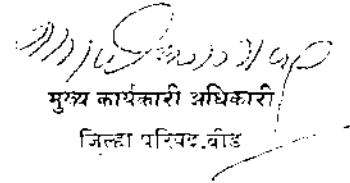 मुख्य कार्यकारी अधिकारी
जिल्हा परिषद.बीड